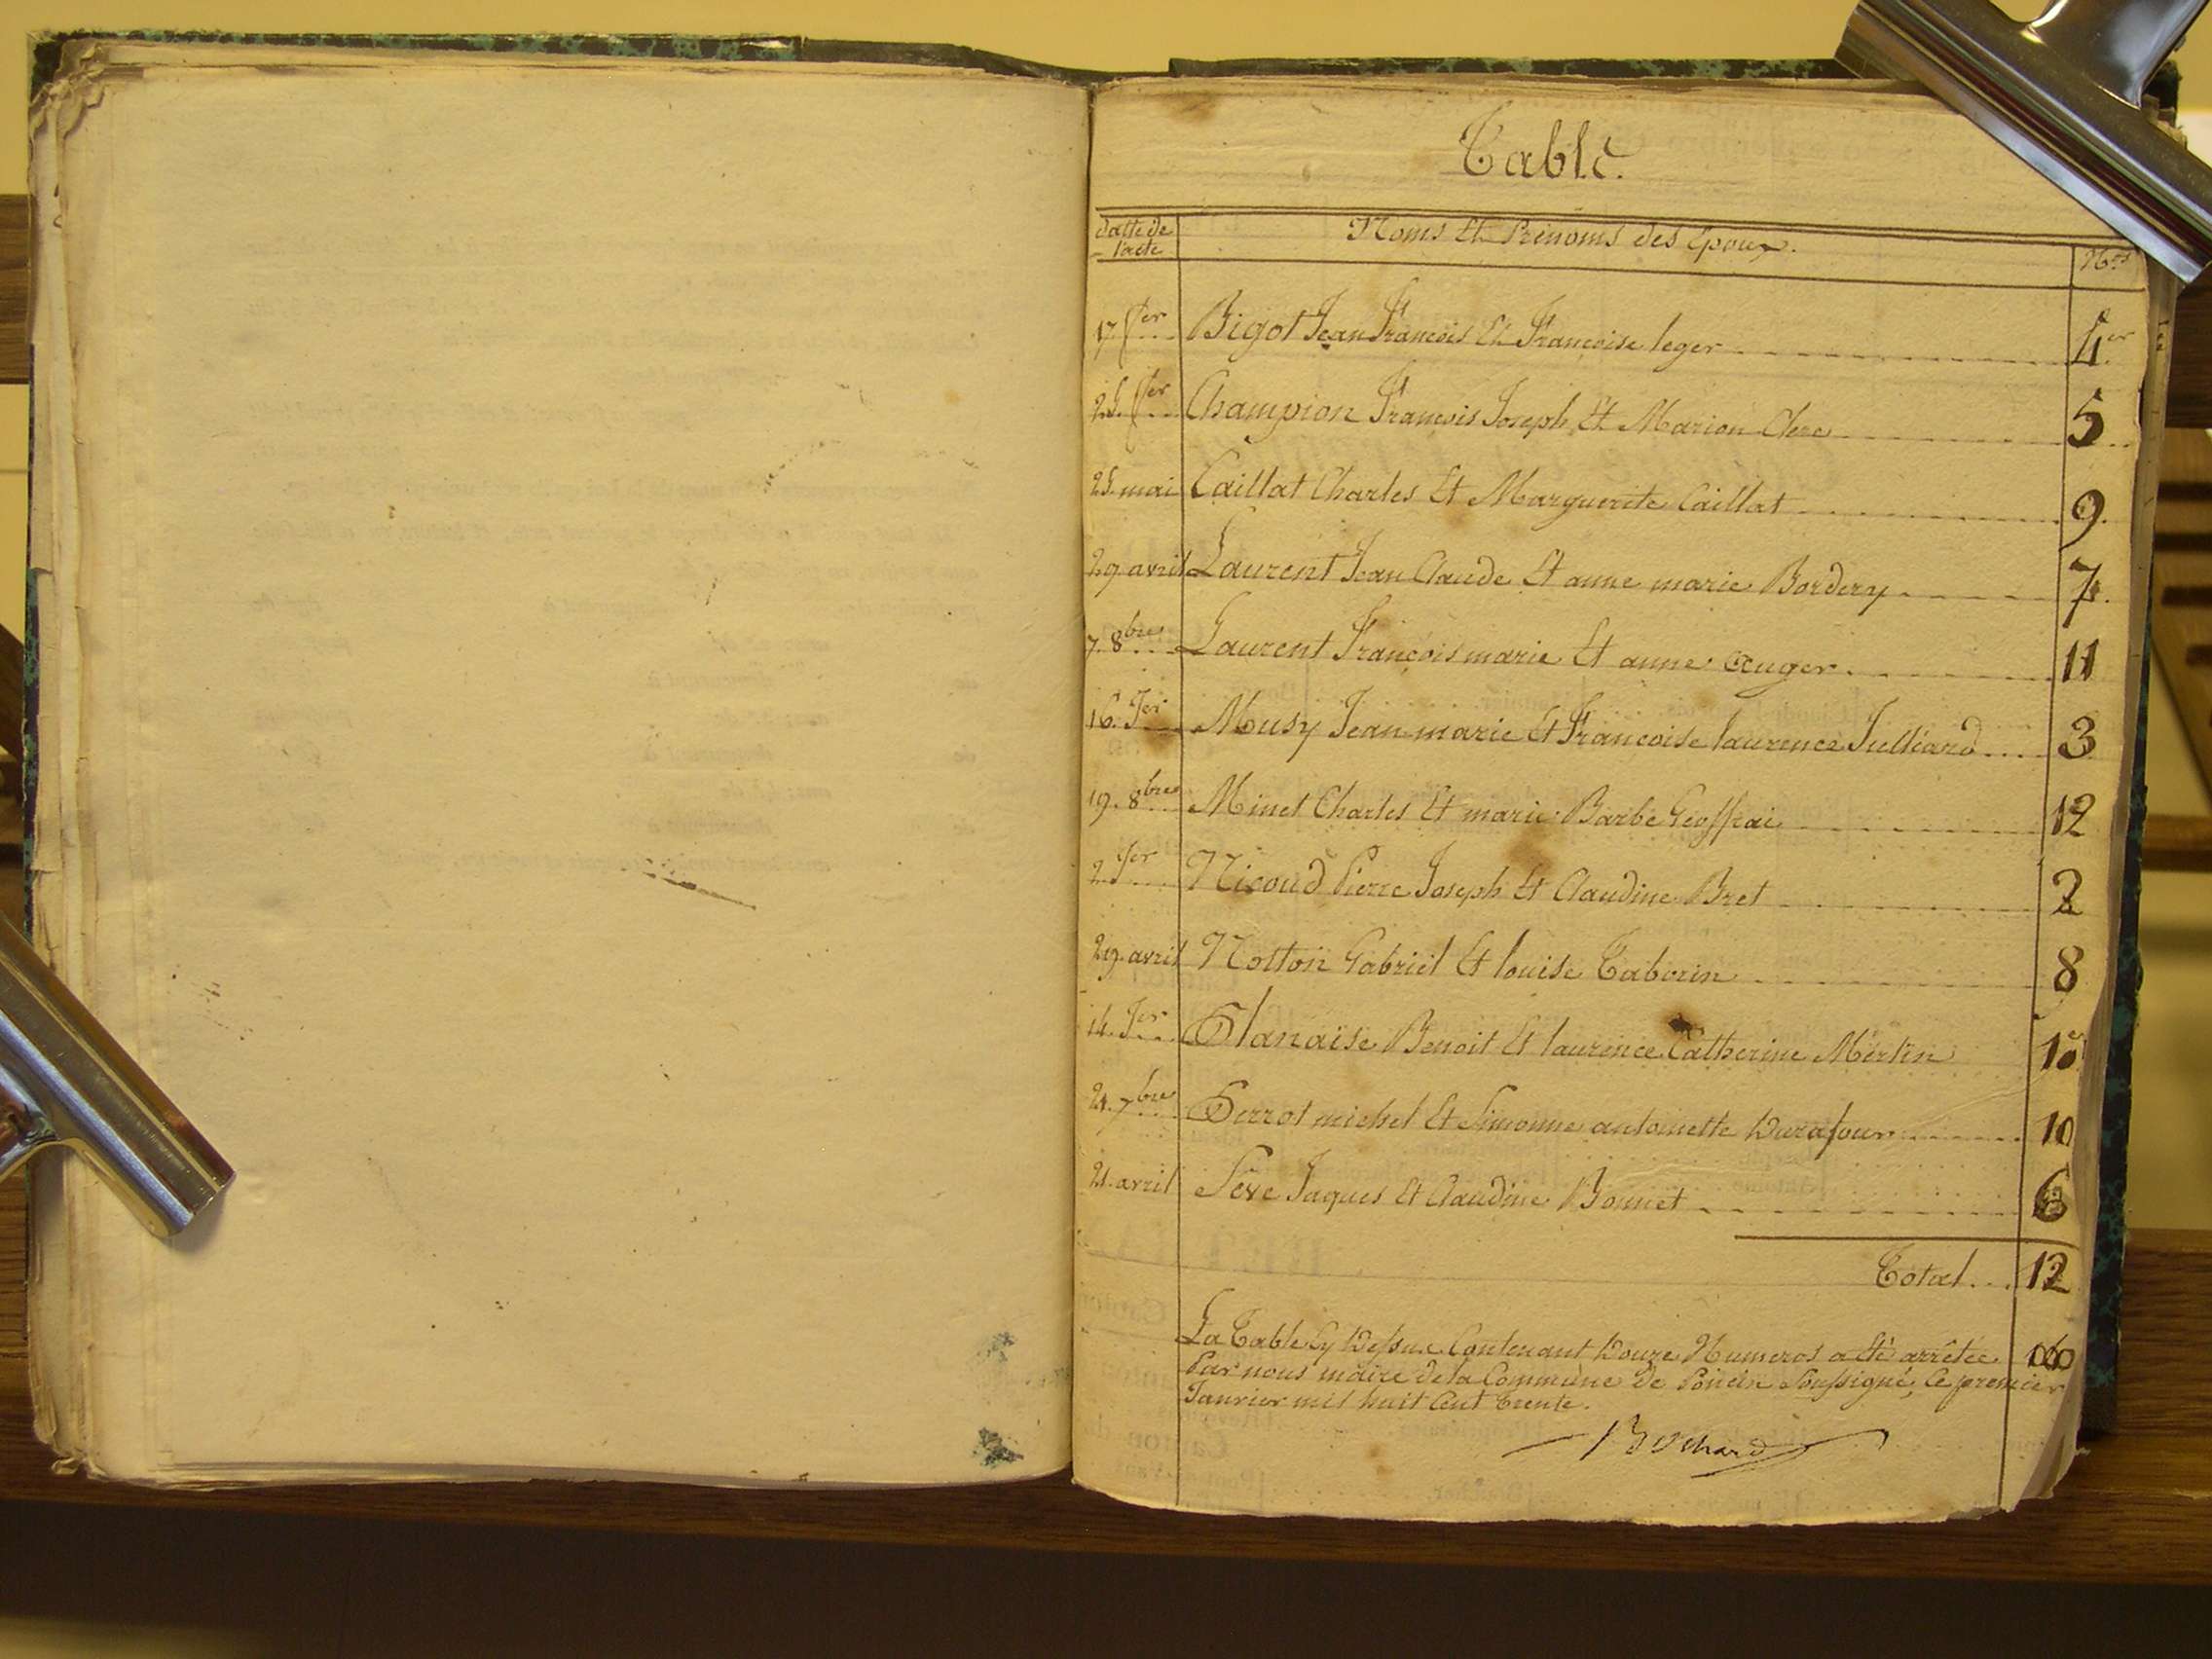 Table.
datte de l'acte Noms Et Prénoms des Epoux. Nos
17. fer Bigot Jean François Et Francoise leger 4
25. fer Champion François Joseph Et Marion Clerc 5
25. mai Caillat Charles Et Marguerite Caillat 9
29. avril Laurent Jean Claude Et anne marie Bordery 7
7. 8bre Laurent François marie Et anne Auger 11
16. Jer Musy Jean marie Et Francoise laurence Julliard 3
19. 8bre Minet Charles Et marie Barbe Geoffrai 12
2 Jer Nicoud Pierre Joseph Et Claudine Bret 2
29. avril Notton Gabriel Et louise Taborin 8
14. Jer Planaise Benoit Et laurence Catherine Merlin 1er
24. 7bre Perrot michel Et Simonne antoinette Durafour 10
21. avril Sève Jaques Et Claudine Bonnet 6
Total 12
La Table Cy Dessus Contenant Douze Numeros a Eté arrêtée
Par nous maire de la Commune de Poncin Soussigné, Ce premier
Janvier mil huit Cent trente.
Bochard